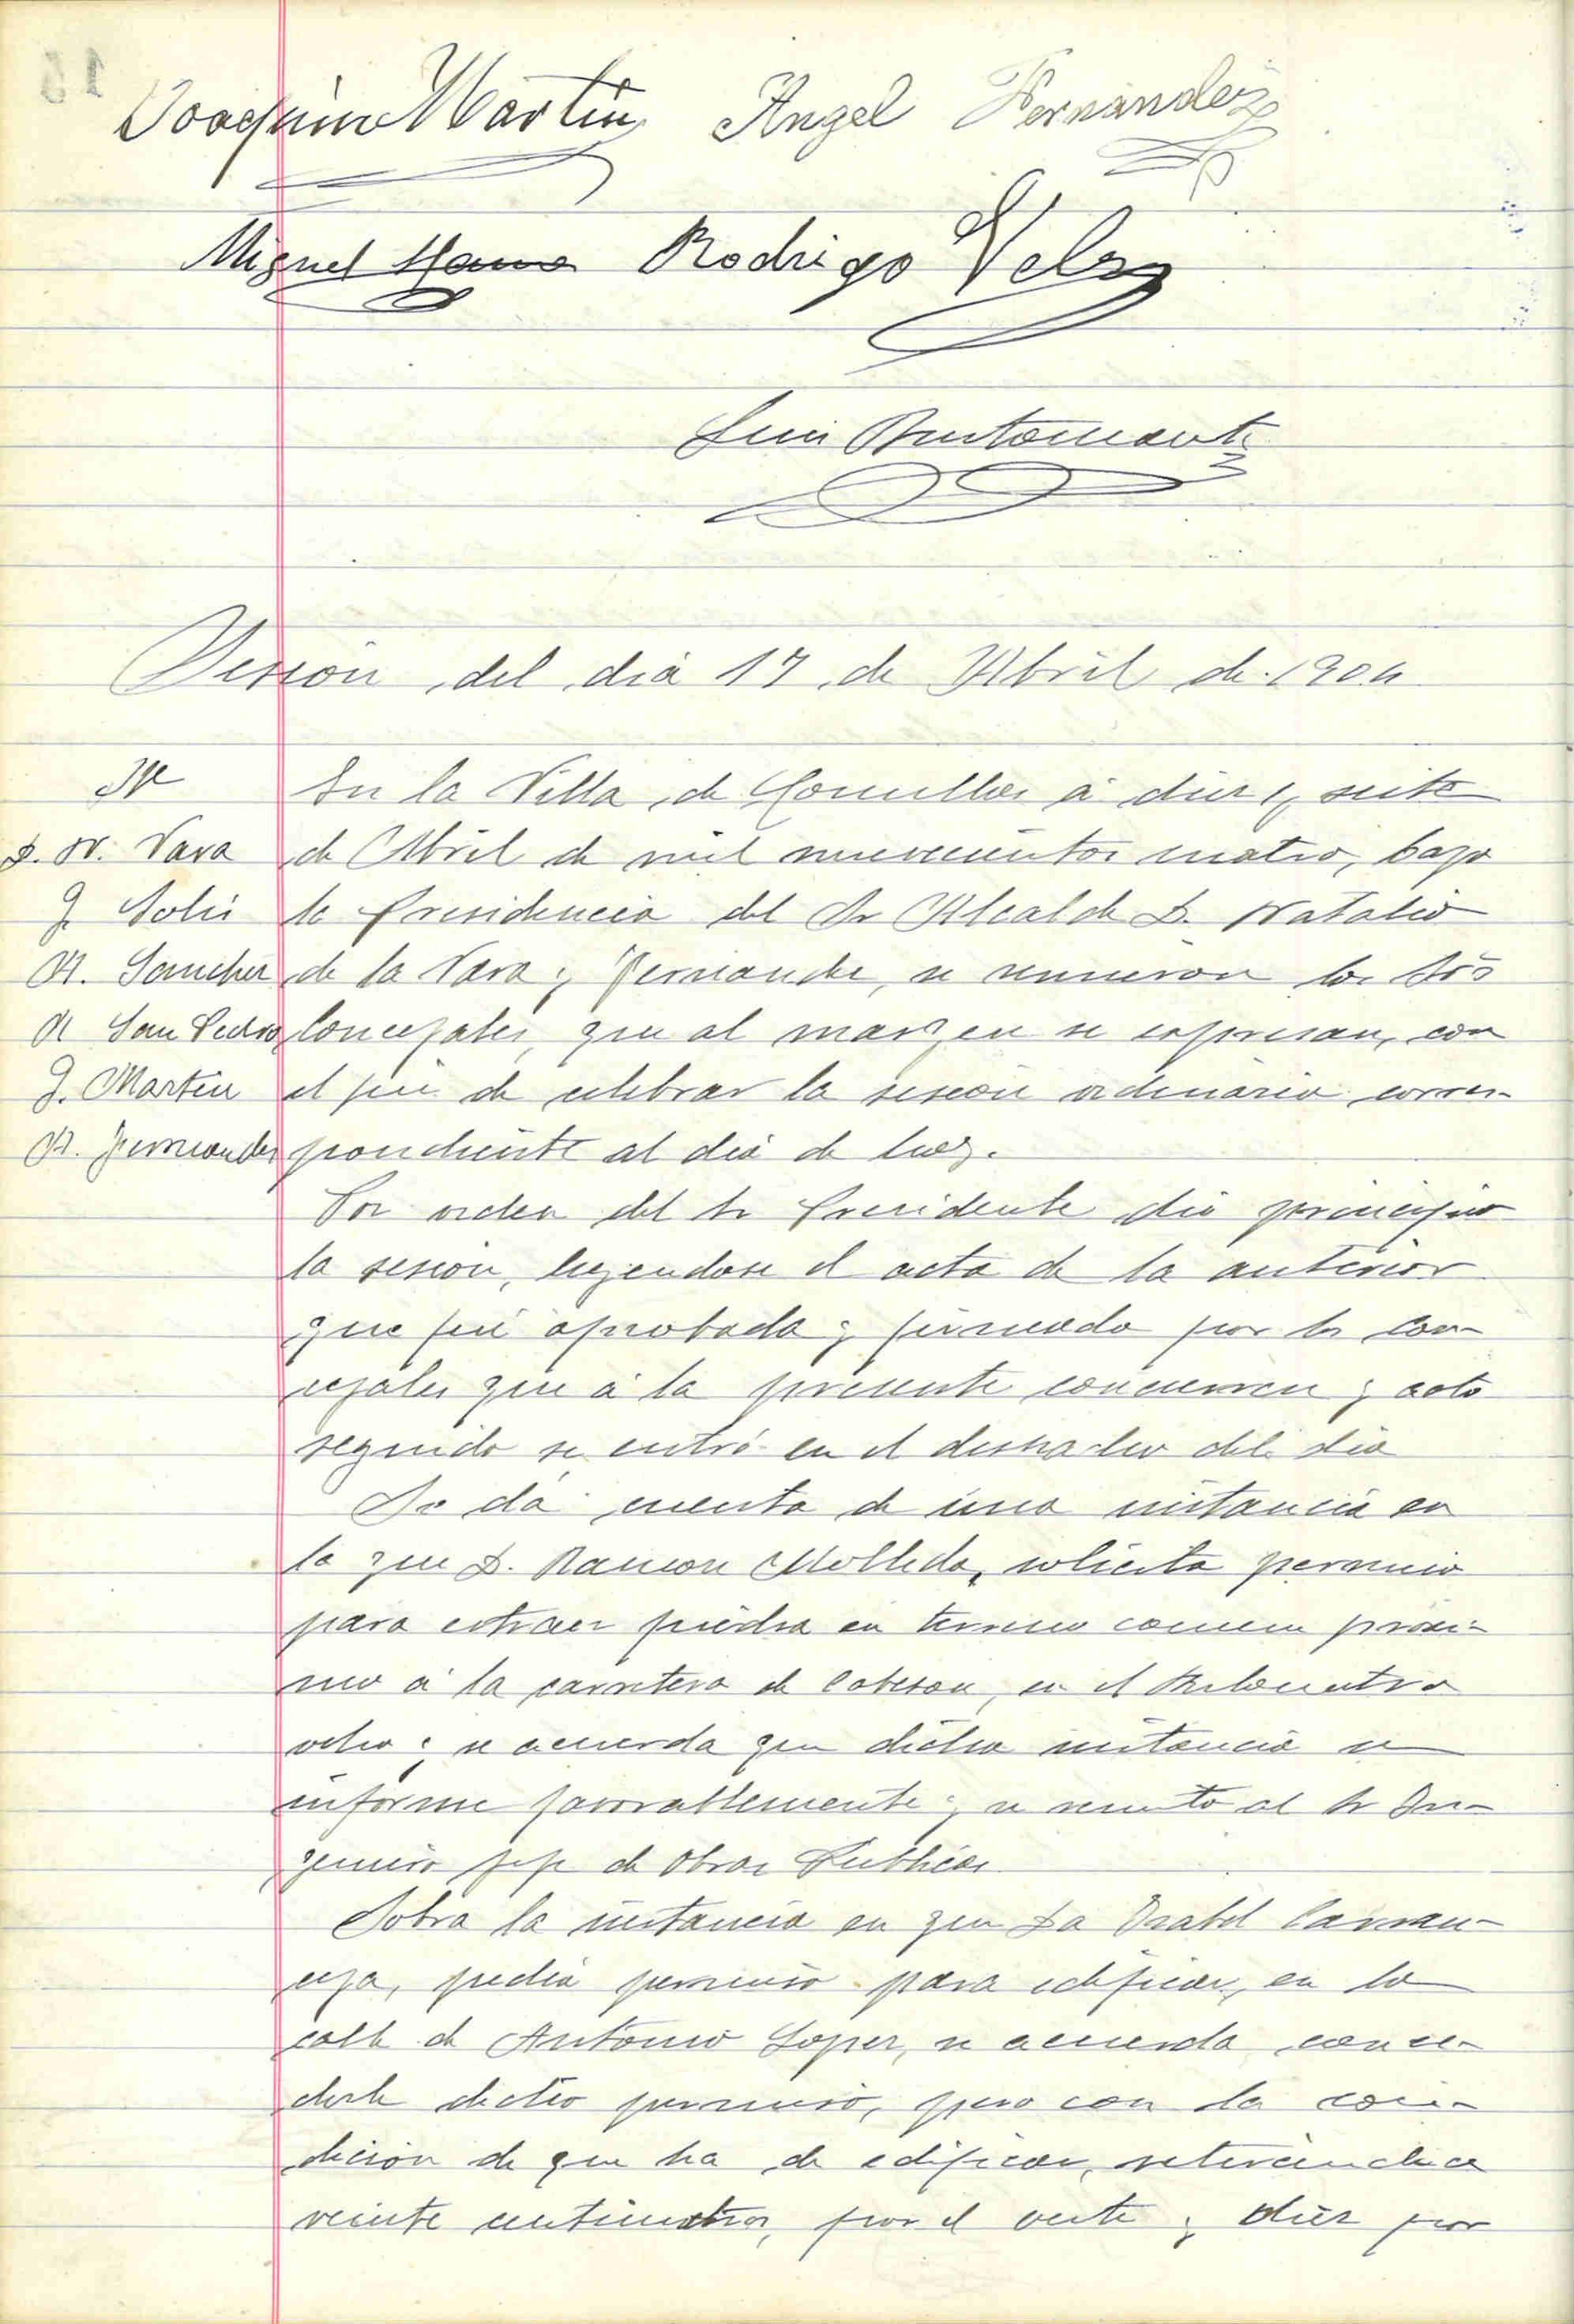 Joaquin Martin Angel Fernandez
Miguel Rodrigo Velez
Bustamante
Sesion del dia 17 de Abril de 1904
En la Villa de Comillas á diez y siete
D. N. Vara de Abril de mil novecientos cuatro, bajo
J. Solis la Presidencia del Sr Alcalde D. Natalio
A. Sanchez de la Vara y Fernandez, se reunieron los Sres
San Pedro Concejales que al margen se espresan, con
J. Martin el fin de celebrar la sesion ordinaria corres-
A. Fernandez pondiente al dia de hoy.
Por orden del Sr Presidente dió principio
la sesion, leyendose el acta de la anterior
que fué aprobada y firmada por los Con-
cejales que á la presente concurren y acto
seguido se entró en el despacho del dia
Se da cuenta de una instancia en
la que D. Ramon Molleda, solicita permiso
para estraer piedra en terreno comun proxi-
mo á la carretera de Cabezon, en el Kilometro
ocho y se acuerda que dicha instancia se
informe favorablemente y se remita al Sr In-
geniero Jefe de Obras Publicas.
Sobre la instancia en que Da Isabel
pedia permiso para edificar, en la
calle de Antonio Lopez, se acuerda conce-
derle dicho permiso, pero con la con-
dicion de que ha de edificar, retirandose
veinte centimetros, por el oeste y diez por